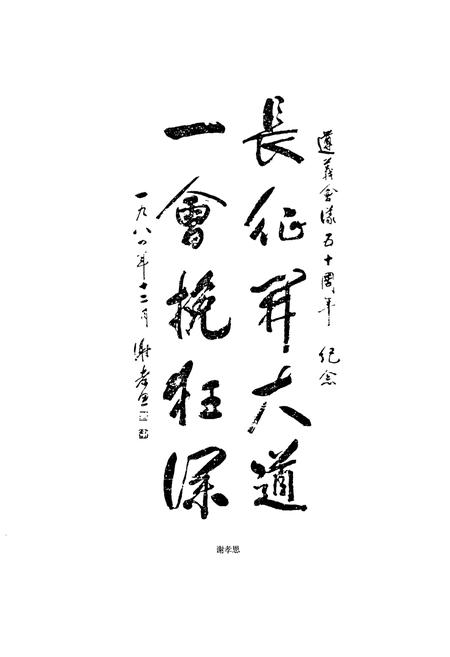 遵義會議五十周年 紀念
長征開大道
一會挽狂瀾
一九八四年十二月 謝孝思
谢孝思